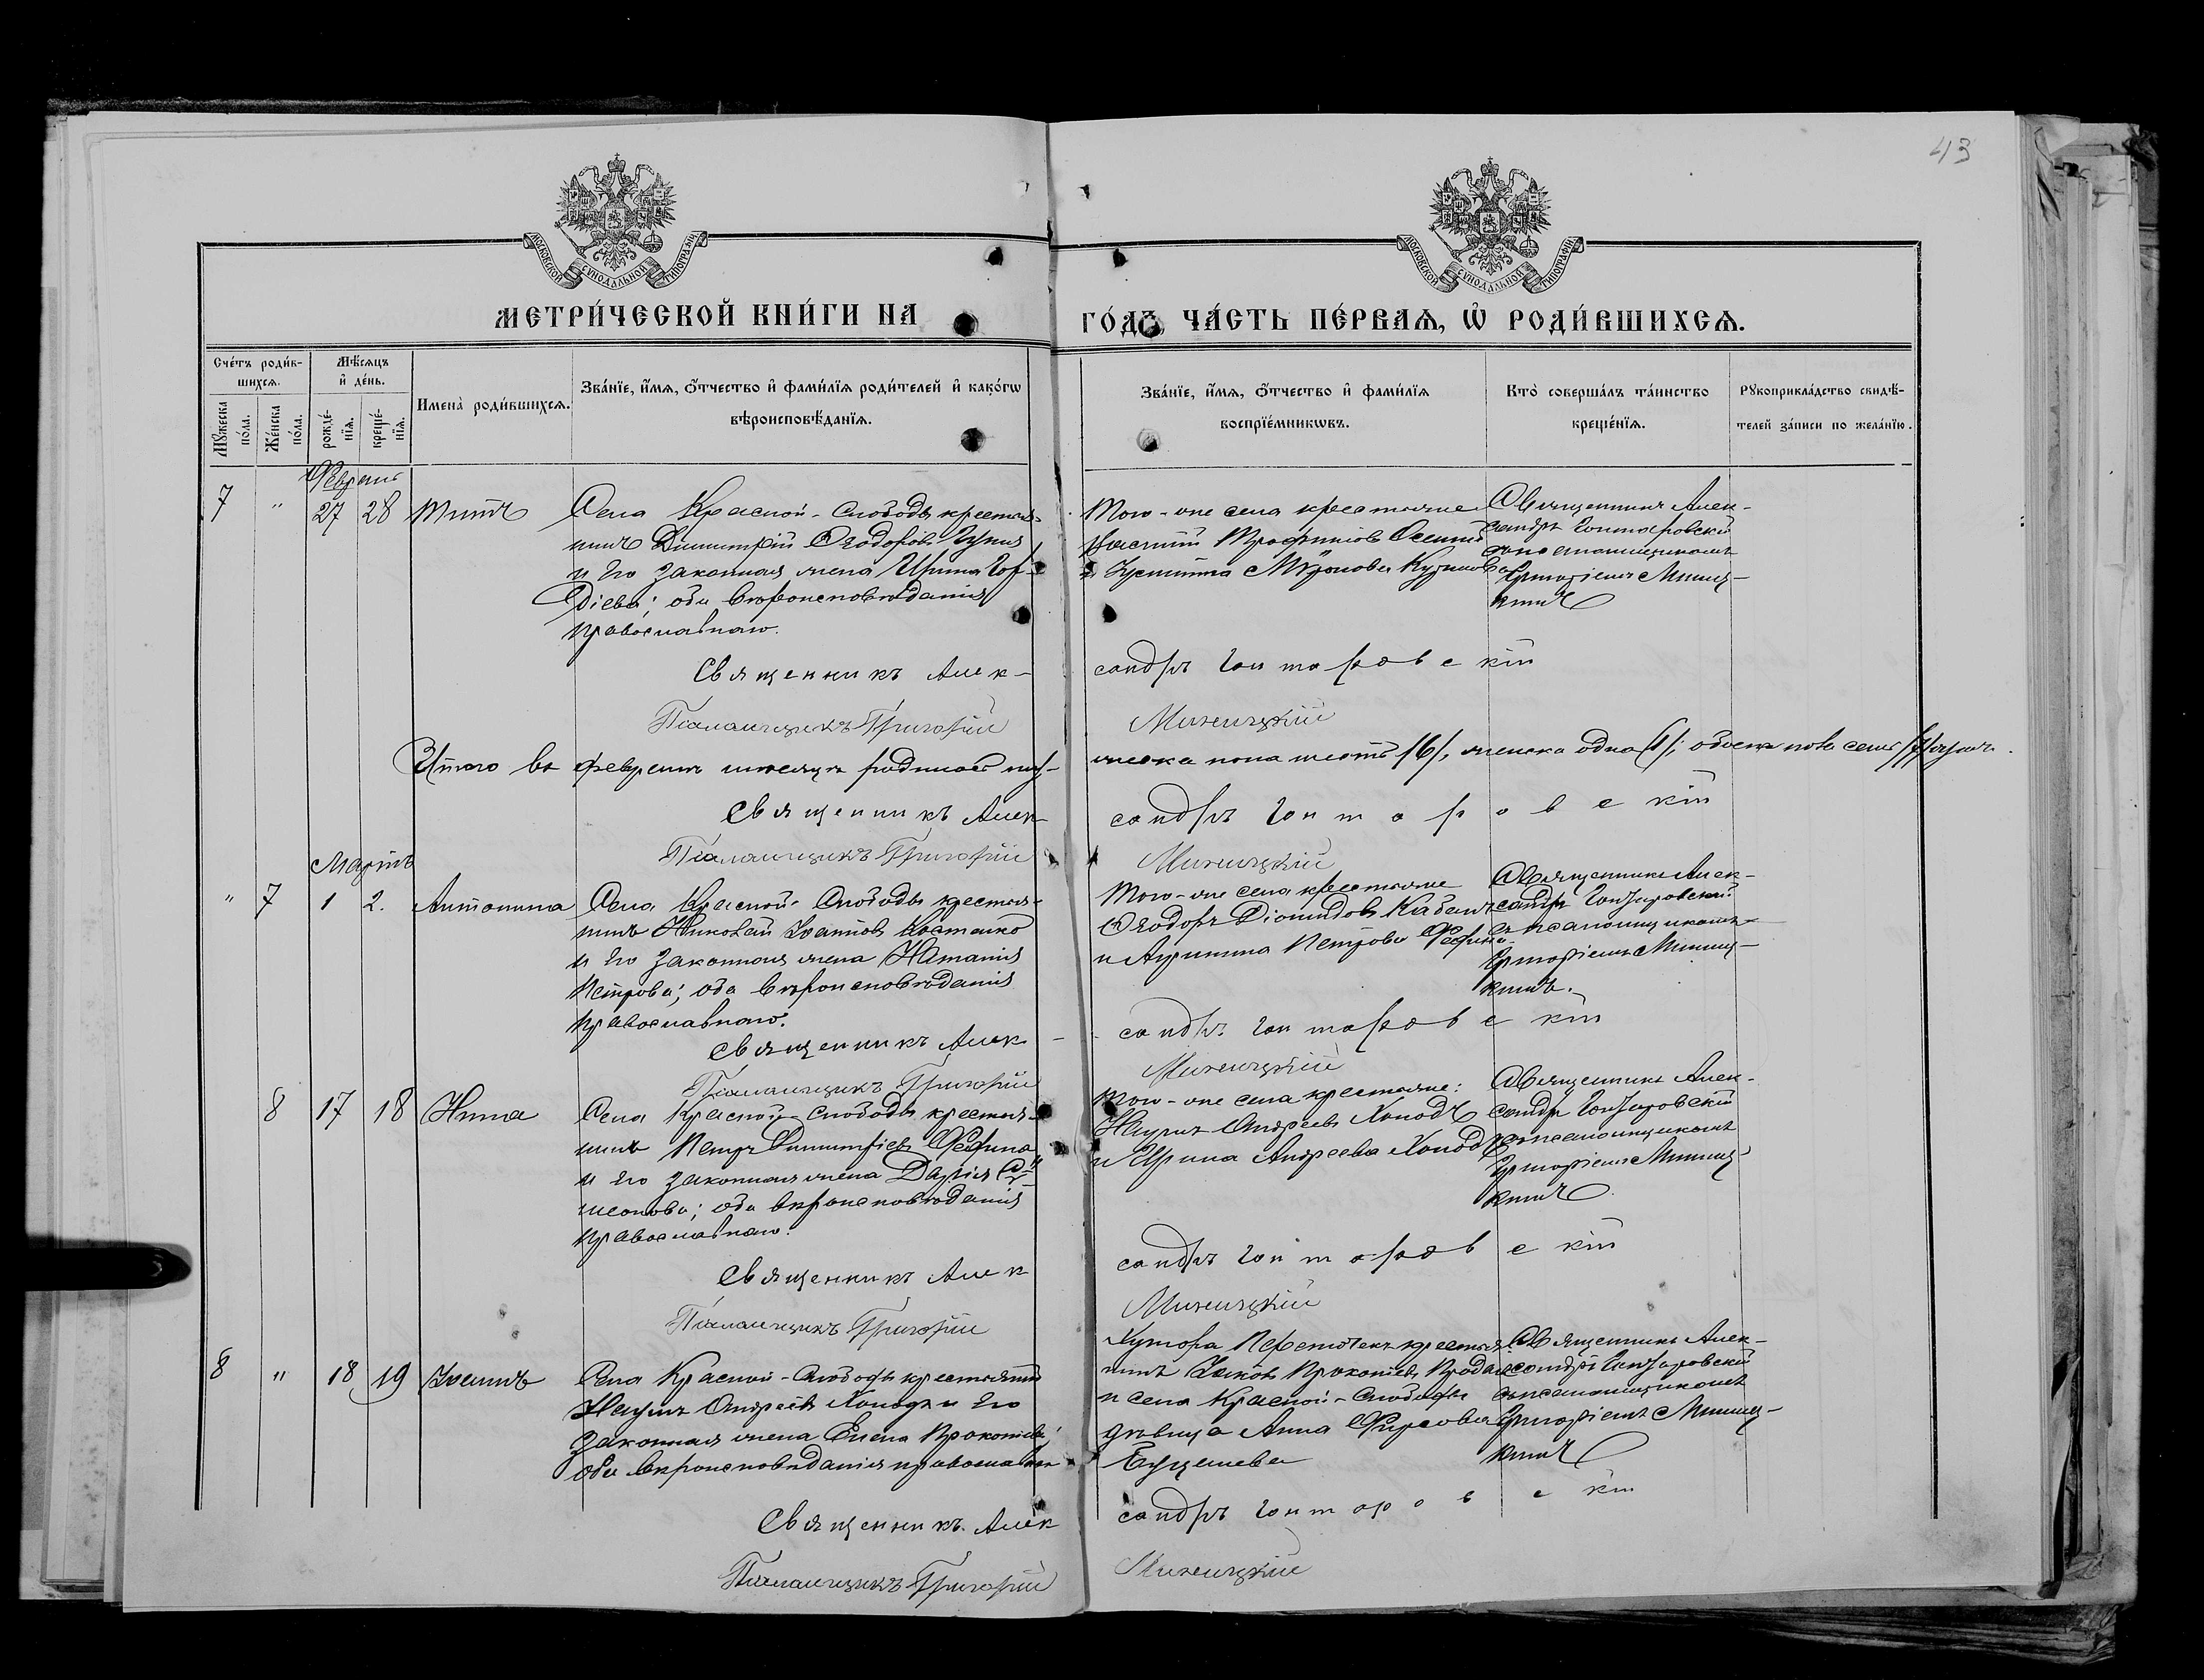 43
МОСКОВСКОЙ СѴНОДАЛЬНОЙ ТИПОГРАФІИ
МОСКОВСКОЙ СѴНОДАЛЬНОЙ ТИПОГРАФІИ
МЕТРИ́ЧЕСКОЙ КНИ́ГИ НА ГО́ДЪ, ЧА́СТЬ ПЕ́РВАѦ, Ѡ҆ РОДИ́ВШИХСѦ.
Сче́тъ роди́в-
шихсѧ.
Мѣ́сѧцъ
и҆ де́нь.
Мꙋ́жеска
по́ла.
Же́нска
по́ла.
рожде́-
нїѧ.
креще́-
нїѧ.
Имена̀ роди́вшихсѧ.
Зва́нїе, и҆́мѧ, ѻ҆́тчество и҆ фами́лїѧ роди́телей и҆ како́гѡ
вѣроисповѣ́данїѧ.
Зва́нїе, и҆́мѧ, ѻ҆́тчество и҆ фами́лїѧ
воспрїе́мникѡвъ.
Кто̀ соверша́лъ та́инство
креще́нїѧ.
Рꙋкоприкла́дство свидѣ́-
телей за́писи по жела́нїю.
Февраль
7 " 27 28 Титъ
Села Красной-Слободы крестья-
нинъ Димитрій Ѳеодоровъ
и его законная жена Ирина Гор-
діева; оба вѣроисповѣданія
православнаго.
Того-же села крестьяне
Трофимовъ
и Мѵронова
Священникъ Алек-
сандръ Гонтаровскій
съ псаломщикомъ
Григоріемъ Миниц-
кимъ
Священникъ Алек-
сандръ Гонтаровскій
Псаломщикъ Григорій Миницкій
Итого въ февралѣ мѣсяцѣ родилось муж-
жеска пола шесть /6/, женска одна /1/; обоего пола семь /7/ душъ.
Священникъ Алек-
сандръ Гонтаровскій
Псаломщикъ Григорій Миницкій
Мартъ
" 7 1 2. Антонина
Села Красной-Слободы крестья-
нинъ Николай Іоанновъ Костенко
и его законная жена Наталія
Петрова; оба вѣроисповѣданія
православнаго.
Того-же села крестьяне
Ѳеодоръ Діомидовъ
и Акилина Петрова
Священникъ Алек-
сандръ Гонтаровскій
съ псаломщикомъ
Григоріемъ Миниц-
кимъ.
Священникъ Алек-
сандръ Гонтаровскій
Псаломщикъ Григорій Миницкій
8 17 18 Нина
Села Красной-Слободы крестья-
нинъ Петръ Димитріевъ
и его законная жена Дарія Си-
меонова; оба вѣроисповѣданія
православнаго.
Того-же села крестьяне:
Наумъ Андреевъ Холодъ
и Ирина Андреева Холодъ
Священникъ Алек-
сандръ Гонтаровскій
съ псаломщикомъ
Григоріемъ Миниц-
кимъ
Священникъ Алек-
сандръ Гонтаровскій
Псаломщикъ Григорій Миницкій
8 " 18 19 Іоаннъ
Села Красной-Слободы крестьянинъ
Наумъ Андреевъ Холодъ и его
законная жена Елена Прокопіева;
оба вѣроисповѣданія православн
Хутора крестья-
нинъ Іаковъ Прокопіевъ
и села Красной-Слободы
дѣвица Анна Фирсова
Священникъ Алек-
сандръ Гонтаровскій
съ псаломщикомъ
Григоріемъ Миниц-
кимъ
Священникъ Алек-
сандръ Гонтаровскій
Псаломщикъ Григорій Миницкій